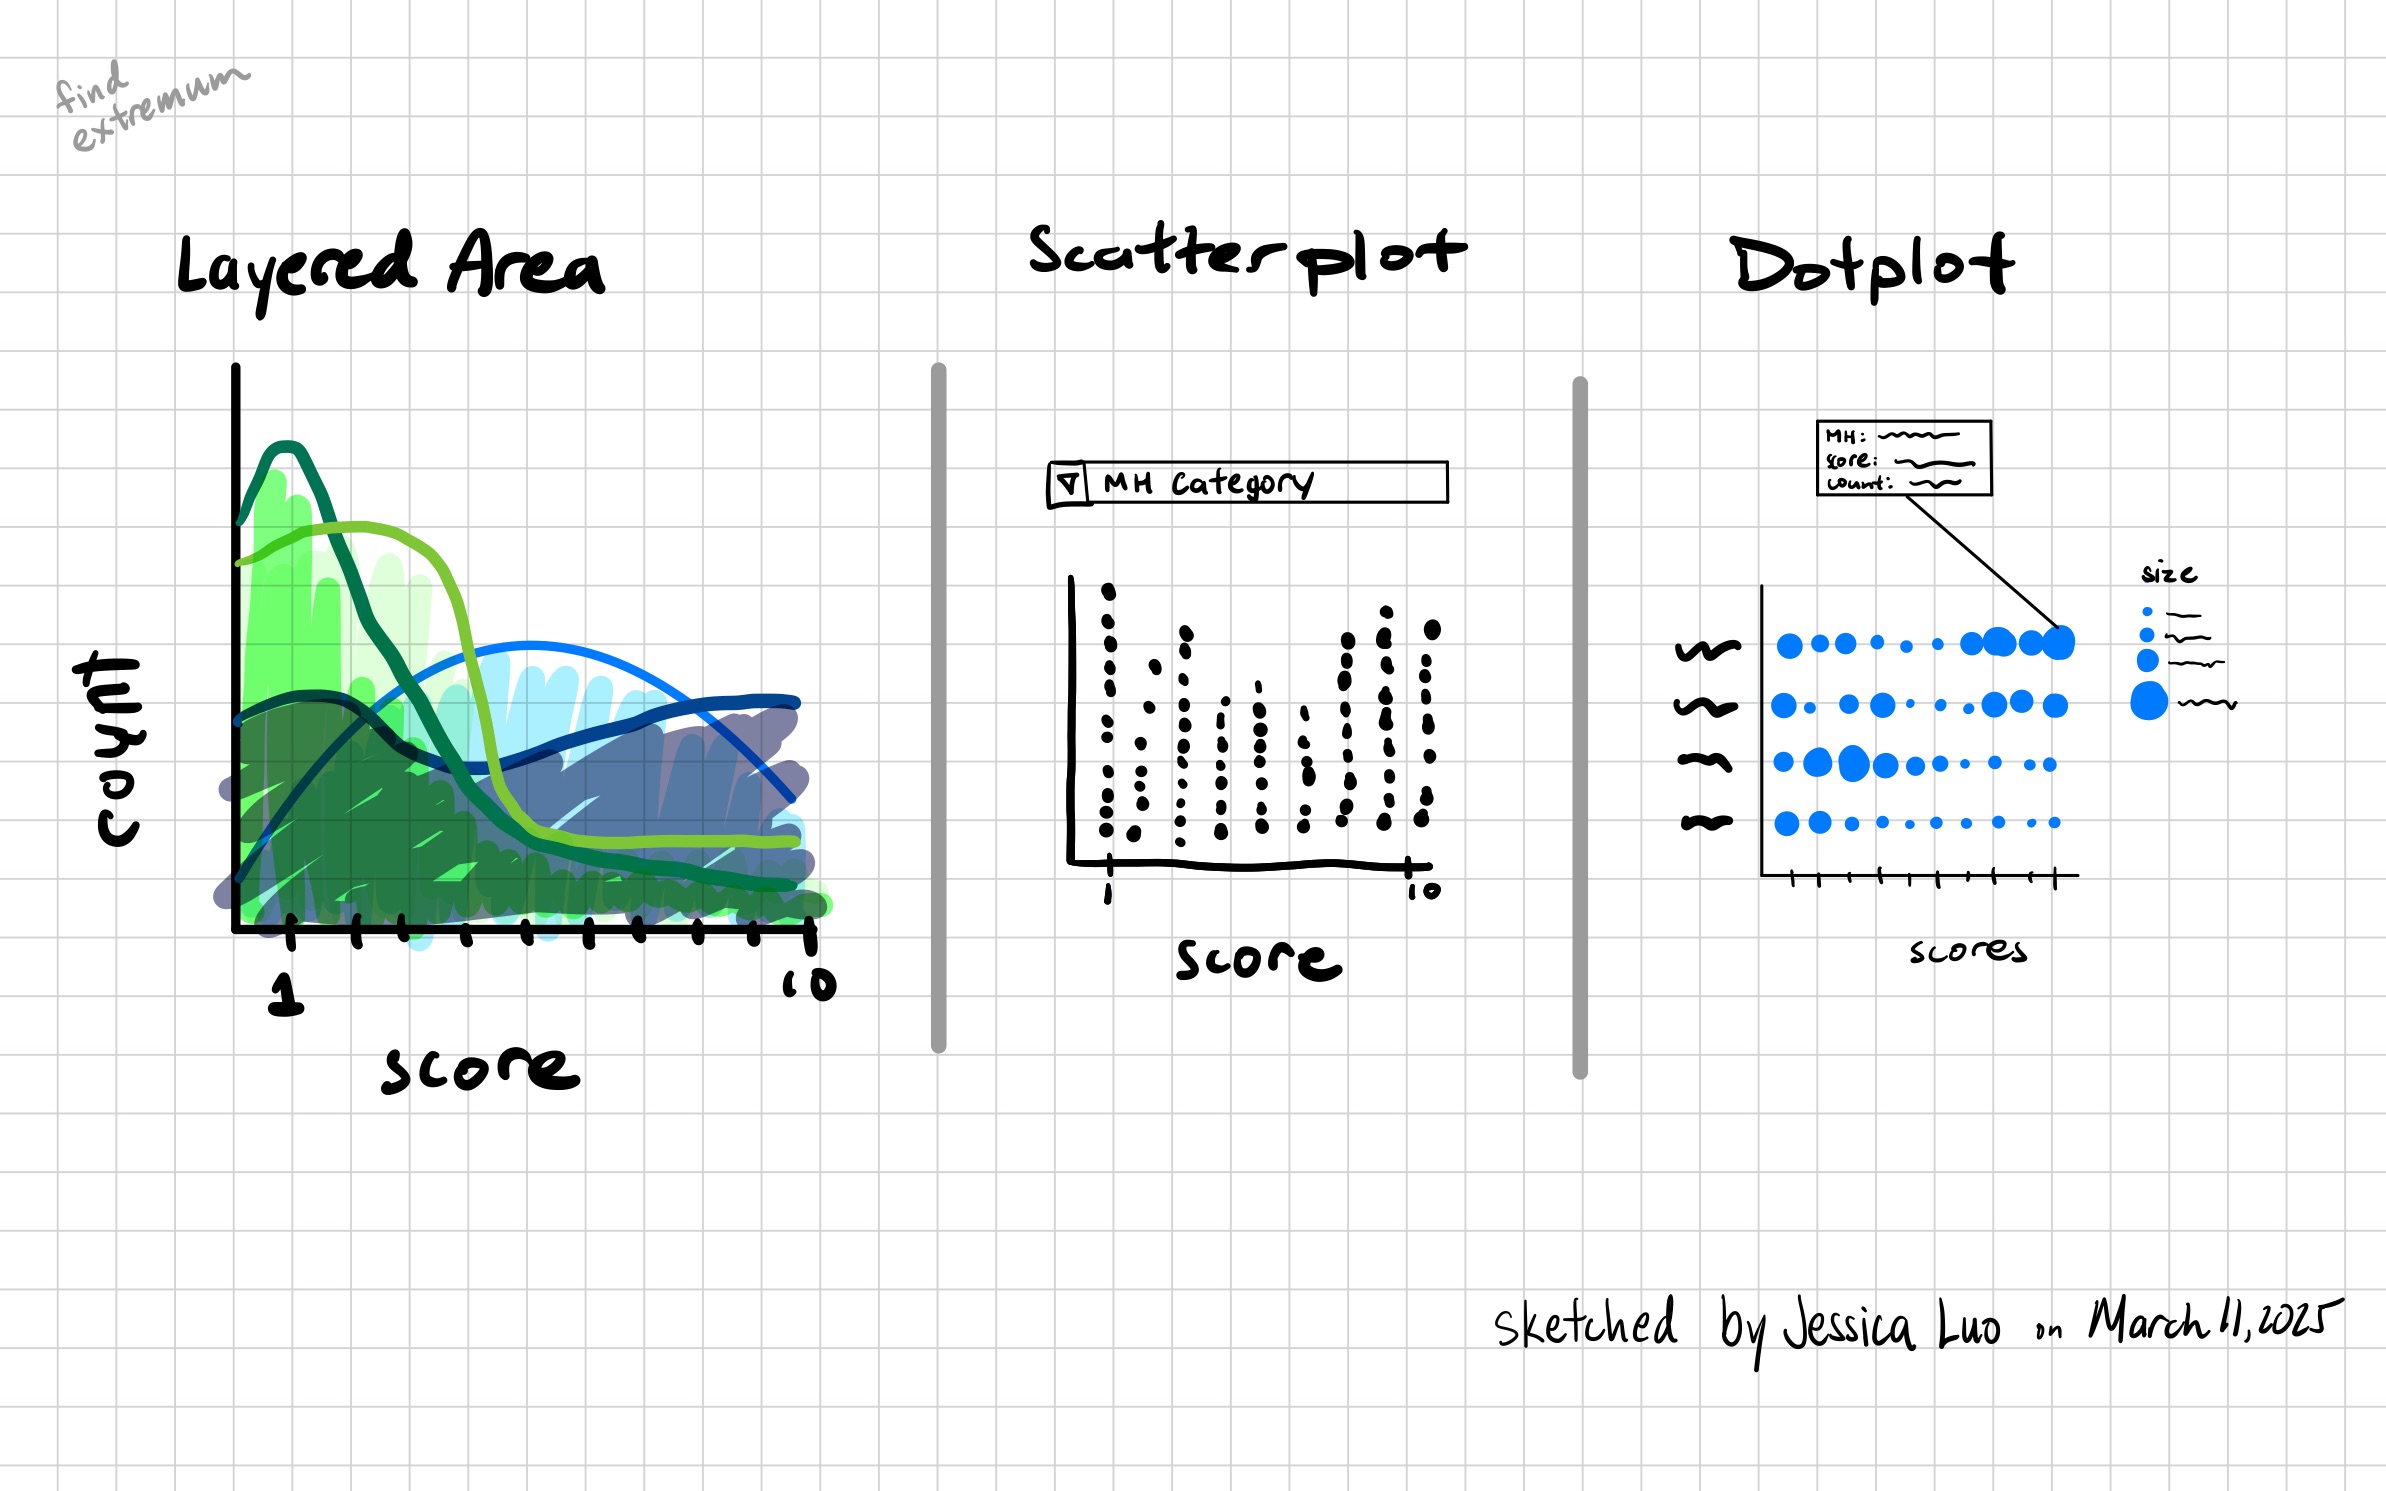 find
extremum
Layered Area
count
1
10
score
Scatterplot
MH Category
1
10
score
Dotplot
MH:
score:
count:
size
scores
sketched by Jessica Luo on March 11, 2025